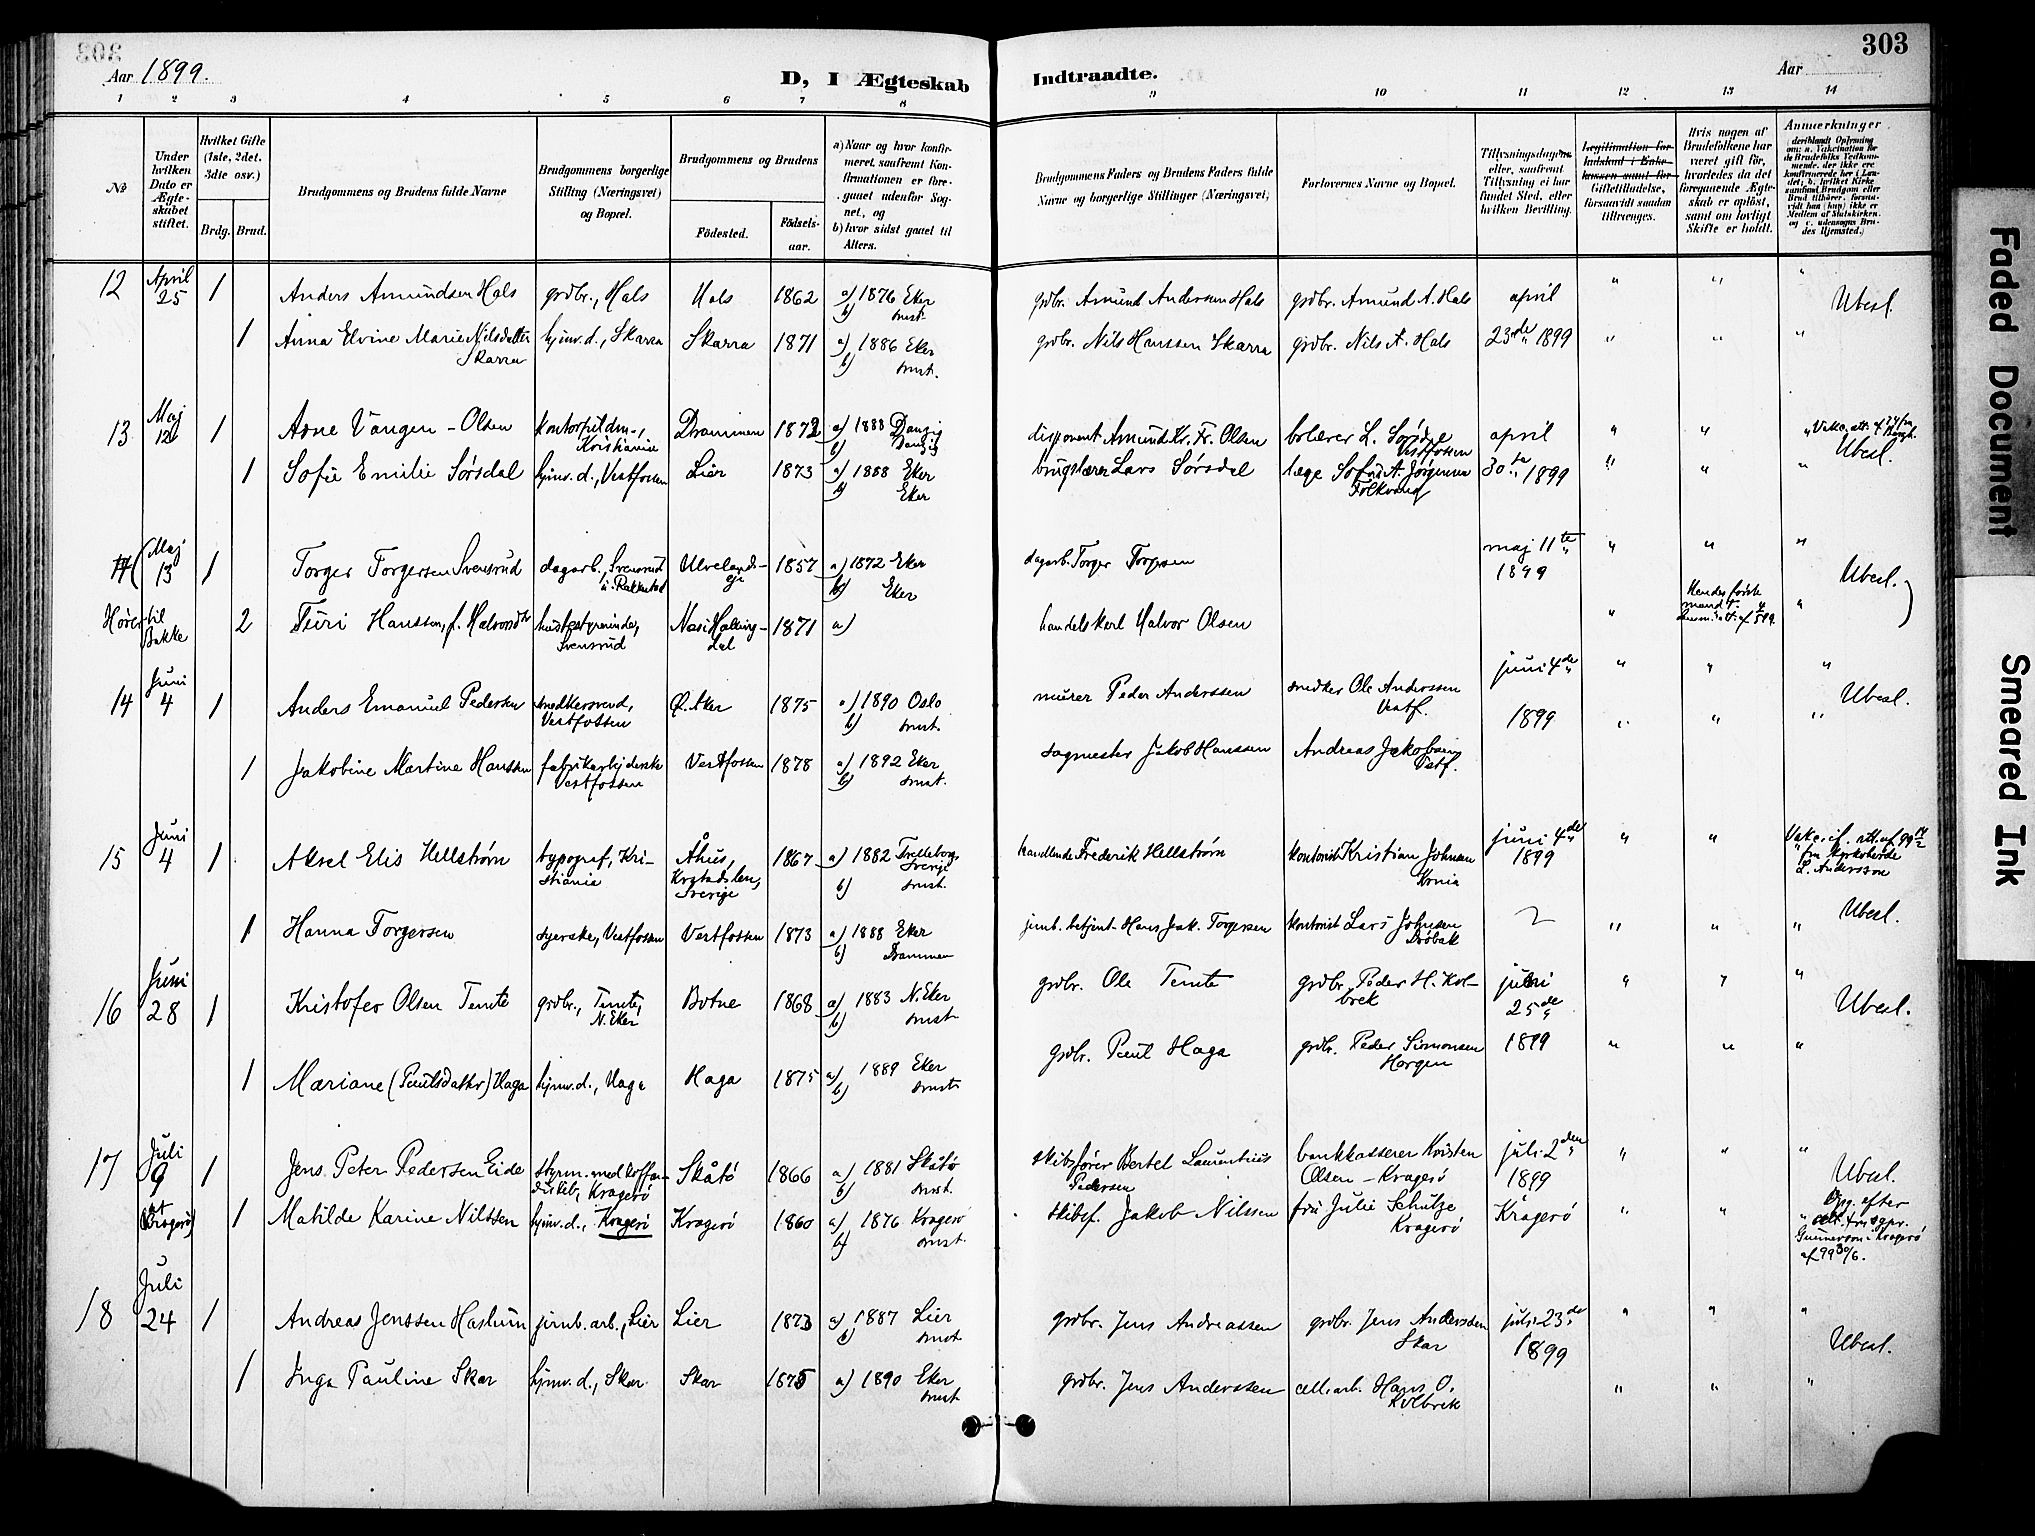 303
Aar 1899.
D, I Ægteskab
Indtraadte.
Aar
303
1 2 3 4 5 6 7 8 9 10 11 12 13 14
No
Under hvilken Dato er Ægteskabet stiftet.
Hvilket Gifte (1ste, 2det. 3die osv.)
Brdg. Brud.
Brudgommens og Brudens fulde Navne
Brudgommens borgerlige Stilling (Næringsvei) og Bopæl.
Brudgommens og Brudens
Födested.
Födselsaar.
a) Naar og hvor konfirmeret, saafremt Konfirmationen er foregaaet udenfor Sognet, og
b) hvor sidst gaaet til Alters.
Brudgommens Faders og Brudens Faders fulde Navne og borgerlige Stillinger (Næringsvei)
Forlovernes Navne og Bopæl.
Tillysningsdagene eller, saafremt Tillysning ei har fundet Sted, efter hvilken Bevilling.
Giftetilladelse, forsaavidt saadan tiltrenges.
Hvis nogen af Brudefolkene har været gift för, hvorledes da det foregaaende Ægteskab er oplöst, samt om lovligt Skifte er holdt.
Anmerkninger
12 April 25 1 Anders Amundsen Hals grdbr., Hals Hals 1862 a) 1876 Eker b) smst. grdbr. Amund Andersen Hals grdbr. Amund A. Hals april " " " Ubesl.
1 Anna Elvine Marie Nilsdatter Skarra hjmv.d., Skarra Skarra 1871 a) 1886 Eker b) smst. grdbr. Nils Hanssen Skarra grdbr. Nils A. Hals 23de 1899 " " "
13 Maj 12 1 Arne Vangen - Olsen kontorfuldm., Kristiania Drammen 1872 a) 1888 Danzig b) Danzig disponent Amund Kr. Fr. Olsen L. Sørsdal Vestfossen april " " Ubesl.
1 Sofie Emilie Sørsdal hjmv.d., Vestfossen Lier 1873 a) 1888 Eker b) Eker Lars Sørsdal læge Sofus A. Jørgensen Folkvang 30te 1899 " " "
14 Maj 13 1 Torger Torgersen Svensrud dagarb., Svensrud Ulvelandseje 1857 a) 1872 Eker b) Eker dagarb. Torger Torgersen maj 11te 1899 " " " Ubesl.
Hører til Bakke 2 Turi Hanssen, f. Halvorsdtr Svensrud Nes i Hallingdal 1871 a) handelskarl Halvor Olsen " Hendes første mand "
14 Juni 4 1 Anders Emanuel Pedersen snedkersvend, Vestfossen Ø. Aker 1875 a) 1890 Oslo b) smst. murer Peder Anderssen snedker Ole Anderssen Vestf. juni 4de 1899 " " " Ubesl.
1 Jakobine Martine Hanssen fabrikarbejderske Vestfossen Vestfossen 1878 a) 1892 Eker b) smst. sagmester Jakob Hanssen Andreas Jakobsen Vestf. " " "
15 Juni 4 1 Aksel Elis Hellstrøm typograf, Kristiania Åhus, Krstadslen, Sverige 1867 a) 1882 Trelleborg Sverige b) smst. handlende Frederik Hellstrøm kontorist Kristian Johnsen Krnia juni 4de 1899 " " fra kyrkoherde L. Andersson
1 Hanna Torgersen syerske, Vestfossen Vestfossen 1873 a) 1888 Eker b) Drammen jernb. betjent Hans Jak. Torgersen kontorist Lars Johnsen Drøbak " " " Ubesl.
16 Juni 28 1 Kristofer Olsen Temte grdbr., Temte, N. Eker Botne 1868 a) 1883 N. Eker b) smst grdbr. Ole Temte grdbr. Peder H. Kolbrek juni 25de 1899 " " " Ubesl.
1 Mariane (Paulsdatter) Haga hjmv.d., Haga Haga 1875 a) 1889 Eker b) smst grdbr. Paul Haga grdbr. Peder Simonsen Horgen " " "
17 Juli 9 (at Kragerø) 1 Jens Peter Pedersen Eide Kragerø Skåtø 1866 a) 1881 Skåtø b) smst. skibsfører Bertel Laurentius Pedersen bankkasserer Kristen Olsen - Kragerø juli 2den 1899 " " " Ubesl.
1 Matilde Karine Nilssen hjmv.d., Kragerø Kragerø 1860 a) 1876 Kragerø b) smst. skibsf. Jakob Nilssen fru Julie Schutze Kragerø Kragerø " " " efter att. fra sgpr. Gunnerson i Kragerø af 99 30/6.
18 Juli 24 1 Andreas Jenssen Haslum jernb. arb., Lier Lier 1873 a) 1887 Lier b) smst grdbr. Jens Andreassen grdbr. Jens Anderssen Skar juli 23de 1899 " " " Ubesl.
1 Inga Pauline Skar hjmv.d., Skar Skar 1875 a) 1890 Eker smst grdbr. Jens Anderssen cell.arb. Hans O. Kolbrek " " "
Faded Document
Smeared Ink